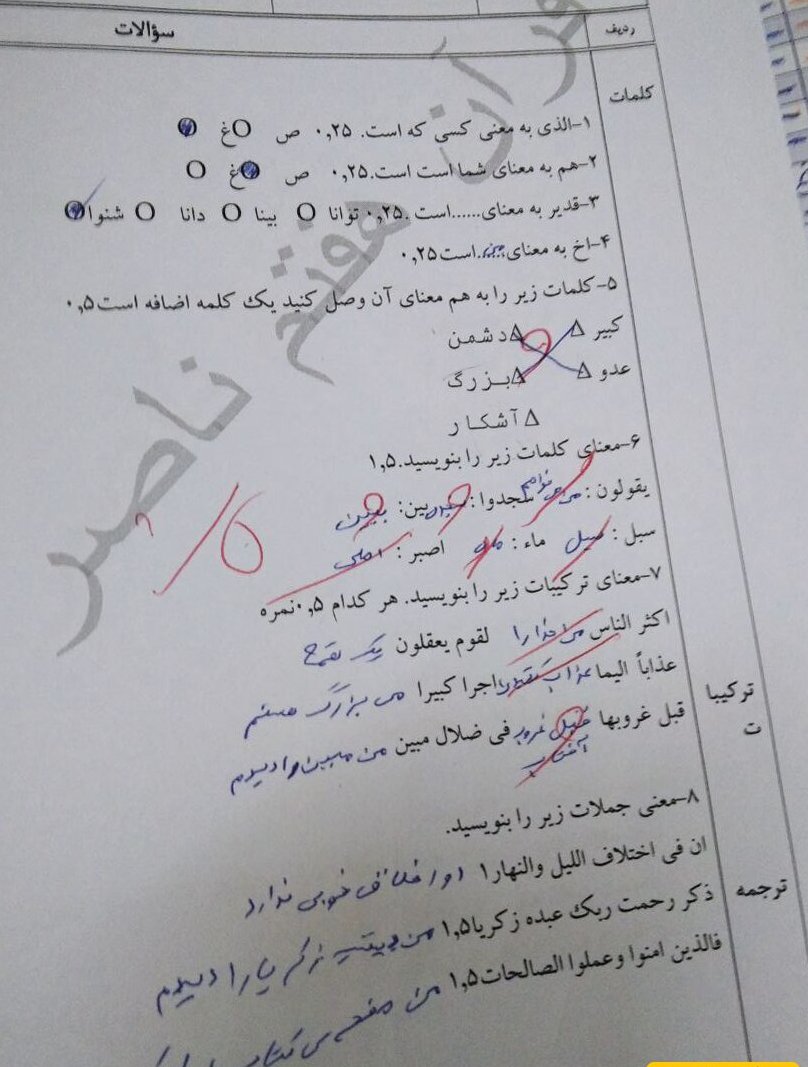 ردیف سؤالات
کلمات
۱-الذی به معنی کسی که است. ۰,۲۵ ص غ
۲-هم به معنای شما است است.۰,۲۵ ص غ
۳-قدیر به معنای......است .۰,۲۵ توانا بینا دانا شنوا
۴-اخ به معنای است۰,۲۵
۵-کلمات زیر را به هم معنای آن وصل کنید یک کلمه اضافه است۰,۵
کبیر دشمن
عدو بزرگ
آشکار
۶-معنای کلمات زیر را بنویسید.۱,۵
یقولون: سجدوا: بین:
سبل: سیل ماء: ماه اصبر:
۷-معنای ترکیبات زیر را بنویسید. هر کدام ۰,۵نمره
ترکیبات
اکثر الناس لقوم یعقلون
عذاباً الیما عذاب اجرا کبیرا می بزرگ هستم
قبل غروبها قبل غروب آفتاب فی ضلال مبین من مبین را دیدم
۸-معنی جملات زیر را بنویسید.
ترجمه
ان فی اختلاف اللیل والنهار۱ او اختلاف خوبی ندارد
ذکر رحمت ربک عبده زکریا۱,۵ من زکریا را دیدم
فالذین امنوا وعملوا الصالحات۱,۵ من
قرآن هفتم ناصر